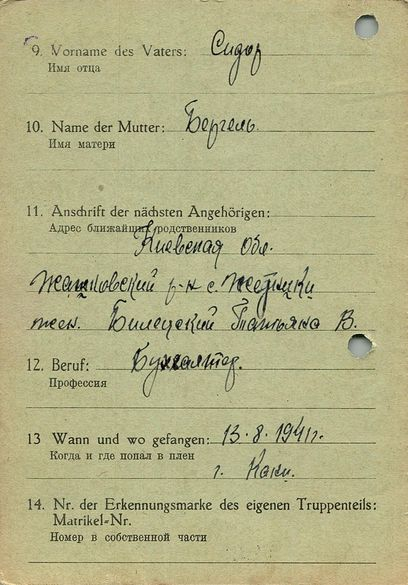 9. Vorname des Vaters: Сидор
Имя отца
10. Name der Mutter: Бергель
Имя матери
11. Anschrift der nächsten Angehörigen:
Адрес ближайших родственников
Киевская обл.
Жашковский р-н с.
жен. Билецкий Татьяна В.
12. Beruf: Бухгалтер.
Профессия
13 Wann und wo gefangen: 13.8.1941г.
Когда и где попал в плен
г.
14. Nr. der Erkennungsmarke des eigenen Truppenteils:
Matrikel-Nr.
Номер в собственной части